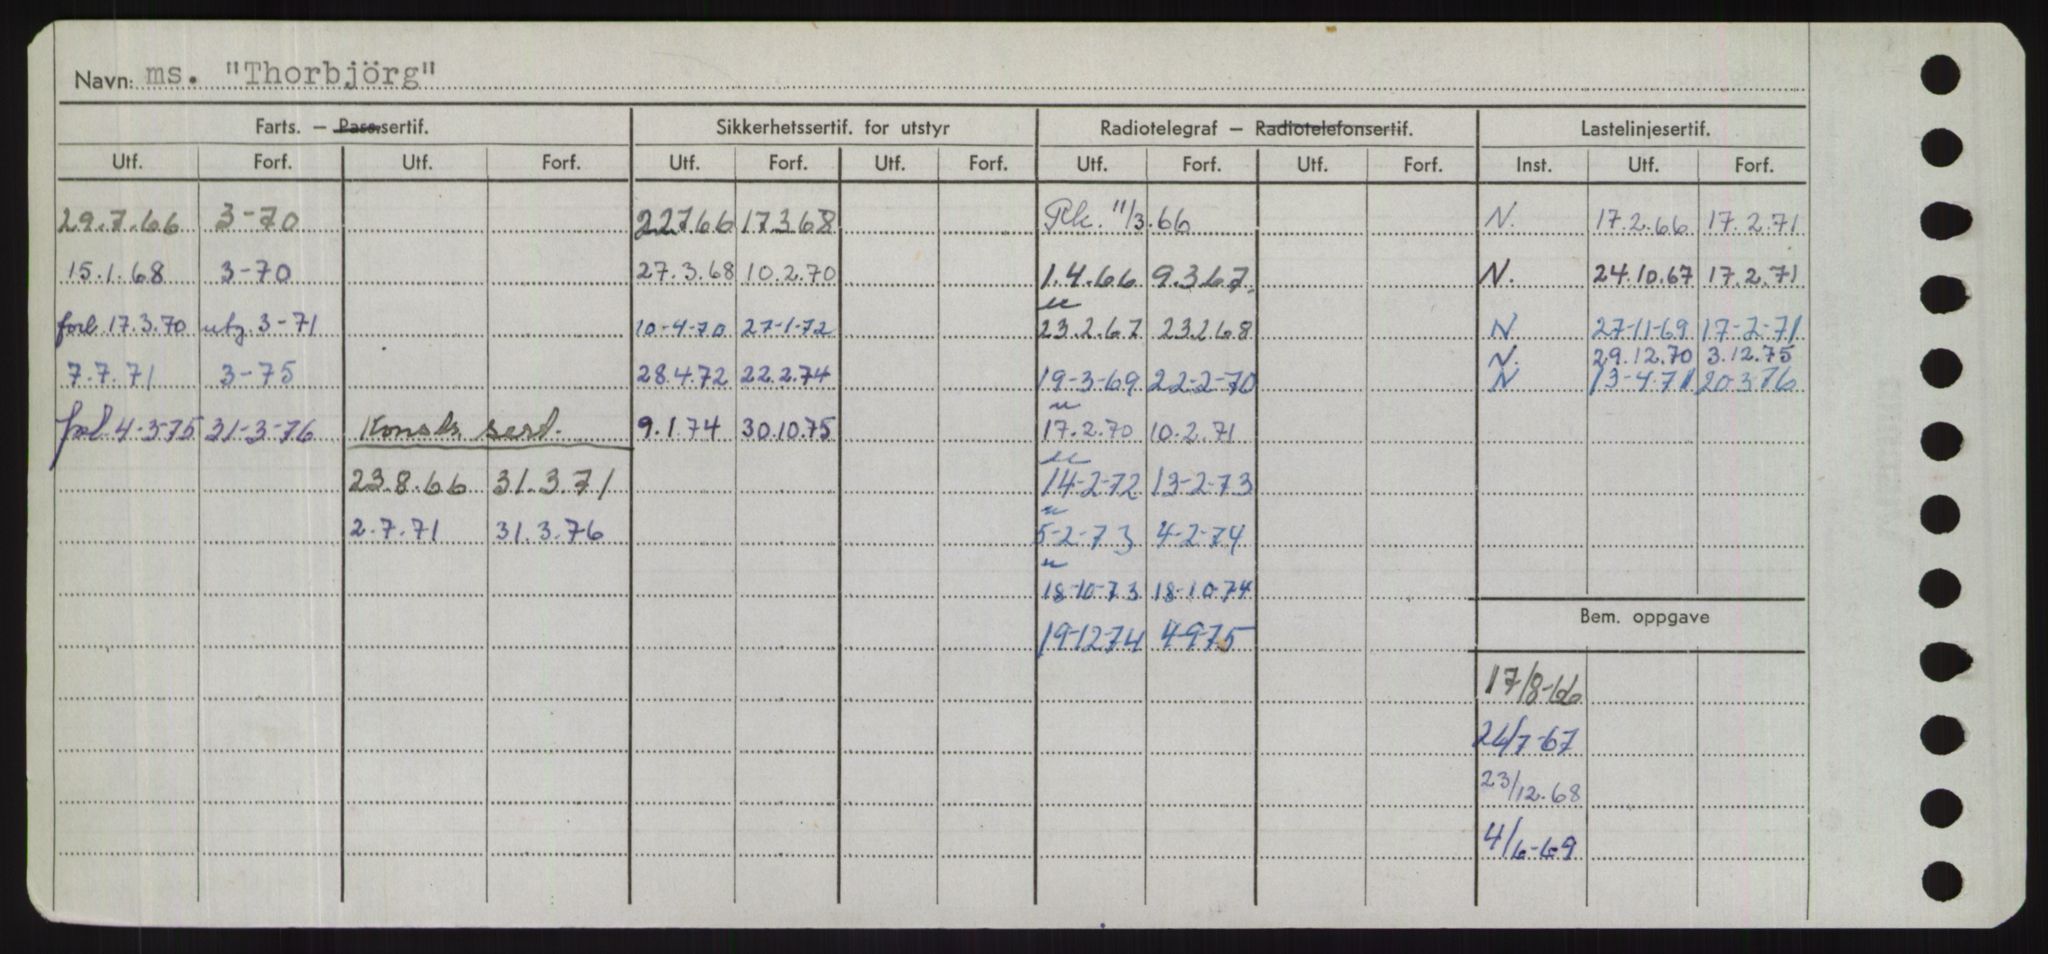 Navn: ms. "Thorbjörg"
Farts. – Pass.sertif. Sikkerhetssertif. for utstyr Radiotelegraf – Radiotelefonsertif. Lastelinjesertif.
Utf. Forf. Utf. Forf. Utf. Forf. Utf. Forf. Utf. Forf. Utf. Forf. Inst. Utf. Forf.
29.7.66 3-70 22766 17368 Rk. 11/3.66 N. 17.2.66 17.2.71
15.1.68 3-70 27.3.68 10.2.70 1.4.66 9.367. N. 24.10.67 17.2.71
forl. 17.3.70 utg. 3-71 10-4-70 27-1-72 23.2.67 23.268 N 27-11-69 17-2-71
N. 29.12.70 3.12.75
7.7.71 3-75 28.4.72 22.2.74 19-3-69 22-2-70 N 13-4-71 20-3-76
forl 4-3-75 31-3-76 Konstr. sert. 9.1.74 30.10.75 17.2.70 10.2.71
23.8.66 31.3.71 14-2-72 13-2-73
2.7.71 31.3.76 5-2-73 4-2-74
18-10-73 18-10-74
Bem. oppgave
19-12-74 4-9-75
17/8-66
26/7-67
23/12.68
4/6-69